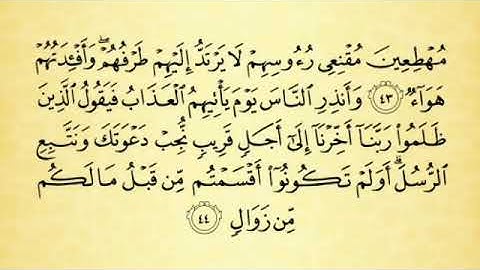 مُهْطِعِينَ مُقْنِعِى رُءُوسِهِمْ لَا يَرْتَدُّ إِلَيْهِمْ طَرْفُهُمْ ۖ وَأَفْـِٔدَتُهُمْ
هَوَآءٌ ٤٣ وَأَنذِرِ ٱلنَّاسَ يَوْمَ يَأْتِيهِمُ ٱلْعَذَابُ فَيَقُولُ ٱلَّذِينَ
ظَلَمُوا۟ رَبَّنَآ أَخِّرْنَآ إِلَىٰٓ أَجَلٍ قَرِيبٍ نُّجِبْ دَعْوَتَكَ وَنَتَّبِعِ
ٱلرُّسُلَ ۗ أَوَلَمْ تَكُونُوٓا۟ أَقْسَمْتُم مِّن قَبْلُ مَا لَكُم
مِّن زَوَالٍ ٤٤